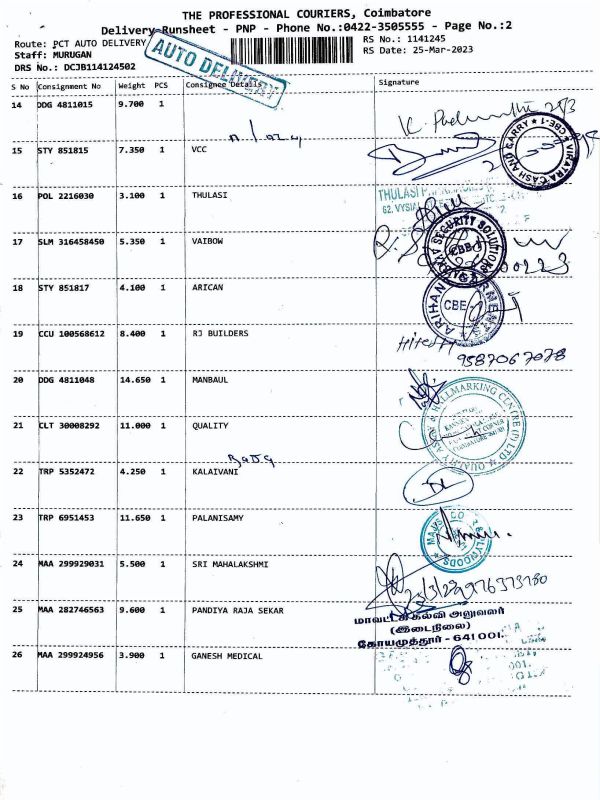 THE PROFESSIONAL COURIERS, Coimbatore
Delivery Runsheet - PNP - Phone No.:0422-3505555 - Page No.:2
Route: PCT AUTO DELIVERY
RS No.: 1141245
Staff: MURUGAN
RS Date: 25-Mar-2023
DRS No.: DCJB114124502
AUTO DELIVERY
S No Consignment No Weight PCS Consignee Details Signature
14 DDG 4811015 9.700 1
15 STY 851815 7.350 1 VCC
VIRATRA CASH AND CARRY CBE-1
16 POL 2216030 3.100 1 THULASI
THULASI
62, VYSIAL
17 SLM 316458450 5.350 1 VAIBOW
SECURITY SOLUTIONS
CBE-1
18 STY 851817 4.100 1 ARICAN
CBE
19 CCU 100568612 8.400 1 RJ BUILDERS
9587067078
20 DDG 4811048 14.650 1 MANBAUL
21 CLT 30008292 11.000 1 QUALITY
HALLMARKING CENTRE (P) LTD QUALITY
22 TRP 5352472 4.250 1 KALAIVANI
23 TRP 6951453 11.650 1 PALANISAMY
24 MAA 299929031 5.500 1 SRI MAHALAKSHMI
25 MAA 282746563 9.600 1 PANDIYA RAJA SEKAR
மாவட்டக் கல்வி அலுவலர்
(இடைநிலை)
கோயமுத்தூர் - 641 001.
26 MAA 299924956 3.900 1 GANESH MEDICAL